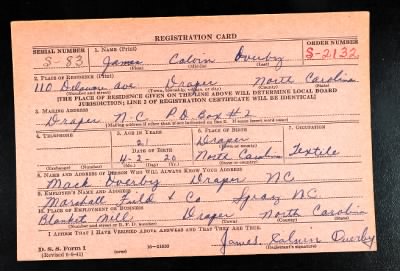 REGISTRATION CARD
SERIAL NUMBER 1. NAME (Print) ORDER NUMBER
S-83 James Calvin Overby S-2132
(First) (Middle) (Last)
2. PLACE OF RESIDENCE (Print)
110 Delaware Ave Draper North Carolina
(Number and street) (Town, township, village, or city) (County) (State)
[THE PLACE OF RESIDENCE GIVEN ON THE LINE ABOVE WILL DETERMINE LOCAL BOARD
JURISDICTION; LINE 2 OF REGISTRATION CERTIFICATE WILL BE IDENTICAL]
3. MAILING ADDRESS
Draper N.C. P.O. Box #2
[Mailing address if other than place indicated on line 2. If same insert word same]
4. TELEPHONE 5. AGE IN YEARS 6. PLACE OF BIRTH 7. OCCUPATION
21 Draper
DATE OF BIRTH (Town or county)
4-2-20 North Carolina Textile
(Exchange) (Number) (Mo.) (Day) (Yr.) (State or country)
8. NAME AND ADDRESS OF PERSON WHO WILL ALWAYS KNOW YOUR ADDRESS
Mack Overby Draper NC
9. EMPLOYER'S NAME AND ADDRESS
Marshall Field & Co Spray NC
10. PLACE OF EMPLOYMENT OR BUSINESS
Blanket Mills Draper North Carolina
(Number and street or R. F. D. number) (Town) (County) (State)
I AFFIRM THAT I HAVE VERIFIED ABOVE ANSWERS AND THAT THEY ARE TRUE.
D. S. S. Form 1 James Calvin Overby
(Revised 6-9-41) (over) (Registrant's signature)